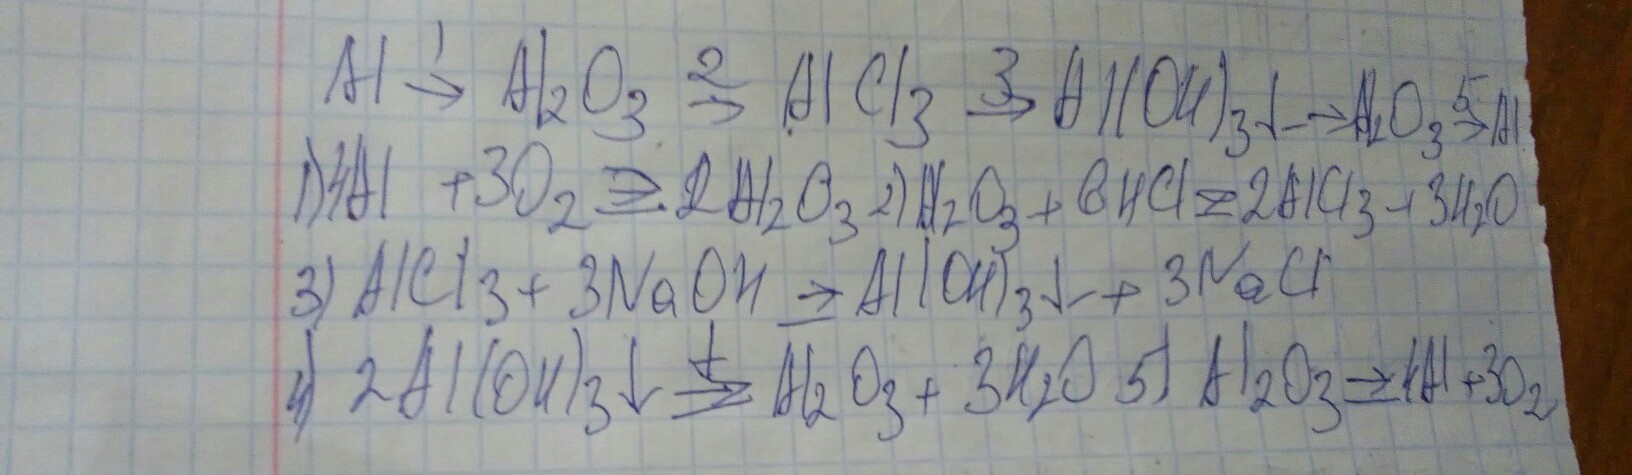 Al →¹ Al₂O₃ →² AlCl₃ →³ Al(OH)₃↓ → Al₂O₃ →⁵ Al
1) 4Al + 3O₂ → 2Al₂O₃ 2) Al₂O₃ + 6HCl = 2AlCl₃ + 3H₂O
3) AlCl₃ + 3NaOH → Al(OH)₃↓ + 3NaCl
4) 2Al(OH)₃↓ →ᵗ Al₂O₃ + 3H₂O 5) Al₂O₃ → 4Al + 3O₂